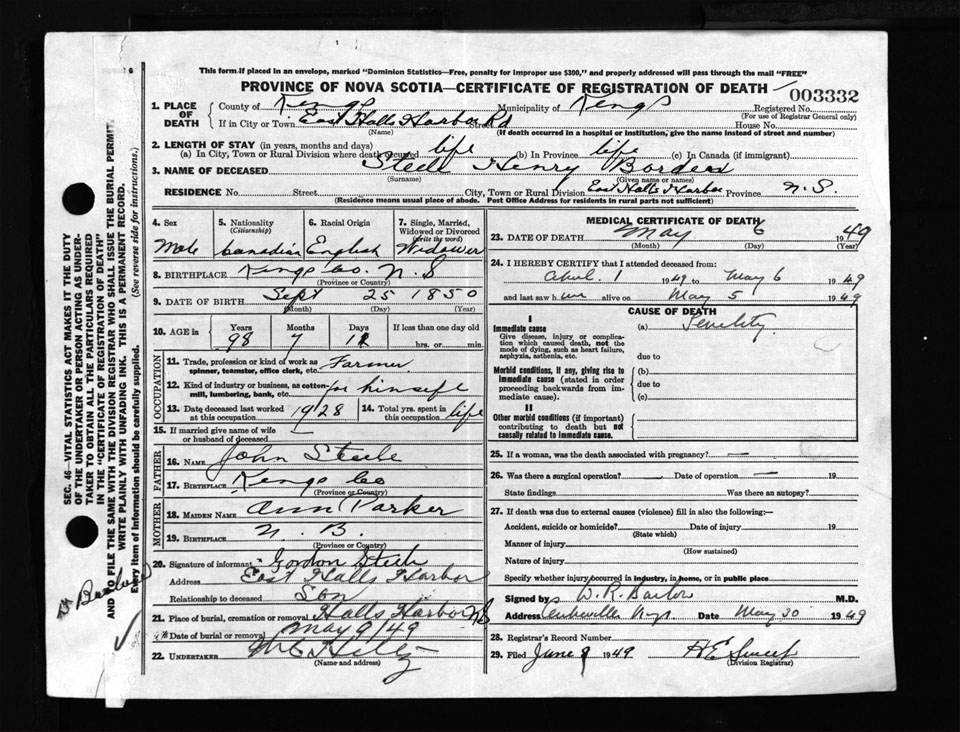 This form if placed in an envelope, marked "Dominion Statistics—Free, penalty for improper use $300," and properly addressed will pass through the mail "FREE"
PROVINCE OF NOVA SCOTIA—CERTIFICATE OF REGISTRATION OF DEATH
003332
1. PLACE OF DEATH { County of Kings Municipality of Kings Registered No.
(For use of Registrar General only)
If in City or Town East Halls Harbor Rd Street House No.
(Name) (If death occurred in a hospital or institution, give the name instead of street and number)
2. LENGTH OF STAY (in years, months and days)
(a) In City, Town or Rural Division where death occurred life (b) In Province life (c) In Canada (if immigrant)
3. NAME OF DECEASED Steele Henry Borden
(Surname) (Given name or names)
RESIDENCE No. Street City, Town or Rural Division East Halls Harbor Province N.S.
(Residence means usual place of abode. Post Office Address for residents in rural parts not sufficient)
4. Sex Male
5. Nationality (Citizenship) Canadian
6. Racial Origin English
7. Single, Married, Widowed or Divorced (write the word) Widower
8. BIRTHPLACE Kings Co. N.S
(Province or Country)
9. DATE OF BIRTH Sept 25 1850
(Month) (Day) (Year)
10. AGE in Years 98 Months 7 Days If less than one day hrs. or min.
OCCUPATION
11. Trade, profession or kind of work as spinner, teamster, office clerk, etc. Farmer
12. Kind of industry or business, as cotton-mill, lumbering, bank, etc. for himself
13. Date deceased last worked at this occupation 1928
14. Total yrs. spent in this occupation life
15. If married give name of wife or husband of deceased —
FATHER
16. NAME John Steele
17. BIRTHPLACE Kings Co
(Province or Country)
MOTHER
18. MAIDEN NAME Ann Parker
19. BIRTHPLACE N. B.
(Province or Country)
20. Signature of informant Gordon Steele
Address East Halls Harbor
Relationship to deceased Son
21. Place of burial, cremation or removal Halls Harbor NS
Date of burial or removal May 9/49
22. UNDERTAKER Hiltz
(Name and address)
MEDICAL CERTIFICATE OF DEATH
23. DATE OF DEATH May 6 1949
(Month) (Day) (Year)
24. I HEREBY CERTIFY that I attended deceased from:
April 1 1949 to May 6 1949
and last saw him alive on May 5 1949
CAUSE OF DEATH
I
Immediate cause (a) Senility
Give disease, injury or complication which caused death, not the mode of dying, such as heart failure, asphyxia, asthenia, etc. due to
Morbid conditions, if any, giving rise to immediate cause (stated in order proceeding backwards from immediate cause). (b)
due to
(c)
II
Other morbid conditions (if important) contributing to death but not causally related to immediate cause.
25. If a woman, was the death associated with pregnancy? —
26. Was there a surgical operation? — Date of operation — 19
State findings Was there an autopsy?
27. If death was due to external causes (violence) fill in also the following:—
Accident, suicide or homicide? Date of injury 19
(State which)
Manner of injury
(How sustained)
Nature of injury
Specify whether injury occurred in industry, in home, or in public place
Signed by W. R. Barlow M.D.
Address Date May 30 1949
28. Registrar's Record Number
29. Filed June 1949 H E Sweet
(Division Registrar)
SEC. 46—VITAL STATISTICS ACT MAKES IT THE DUTY
OF THE UNDERTAKER OR PERSON ACTING AS UNDER-
TAKER TO OBTAIN ALL THE PARTICULARS REQUIRED
IN THE "CERTIFICATE OF REGISTRATION OF DEATH"
AND TO FILE THE SAME WITH THE DIVISION REGISTRAR WHO SHALL ISSUE THE BURIAL PERMIT.
WRITE PLAINLY WITH UNFADING INK. THIS IS A PERMANENT RECORD.
Every item of information should be carefully supplied. (See reverse side for instructions.)